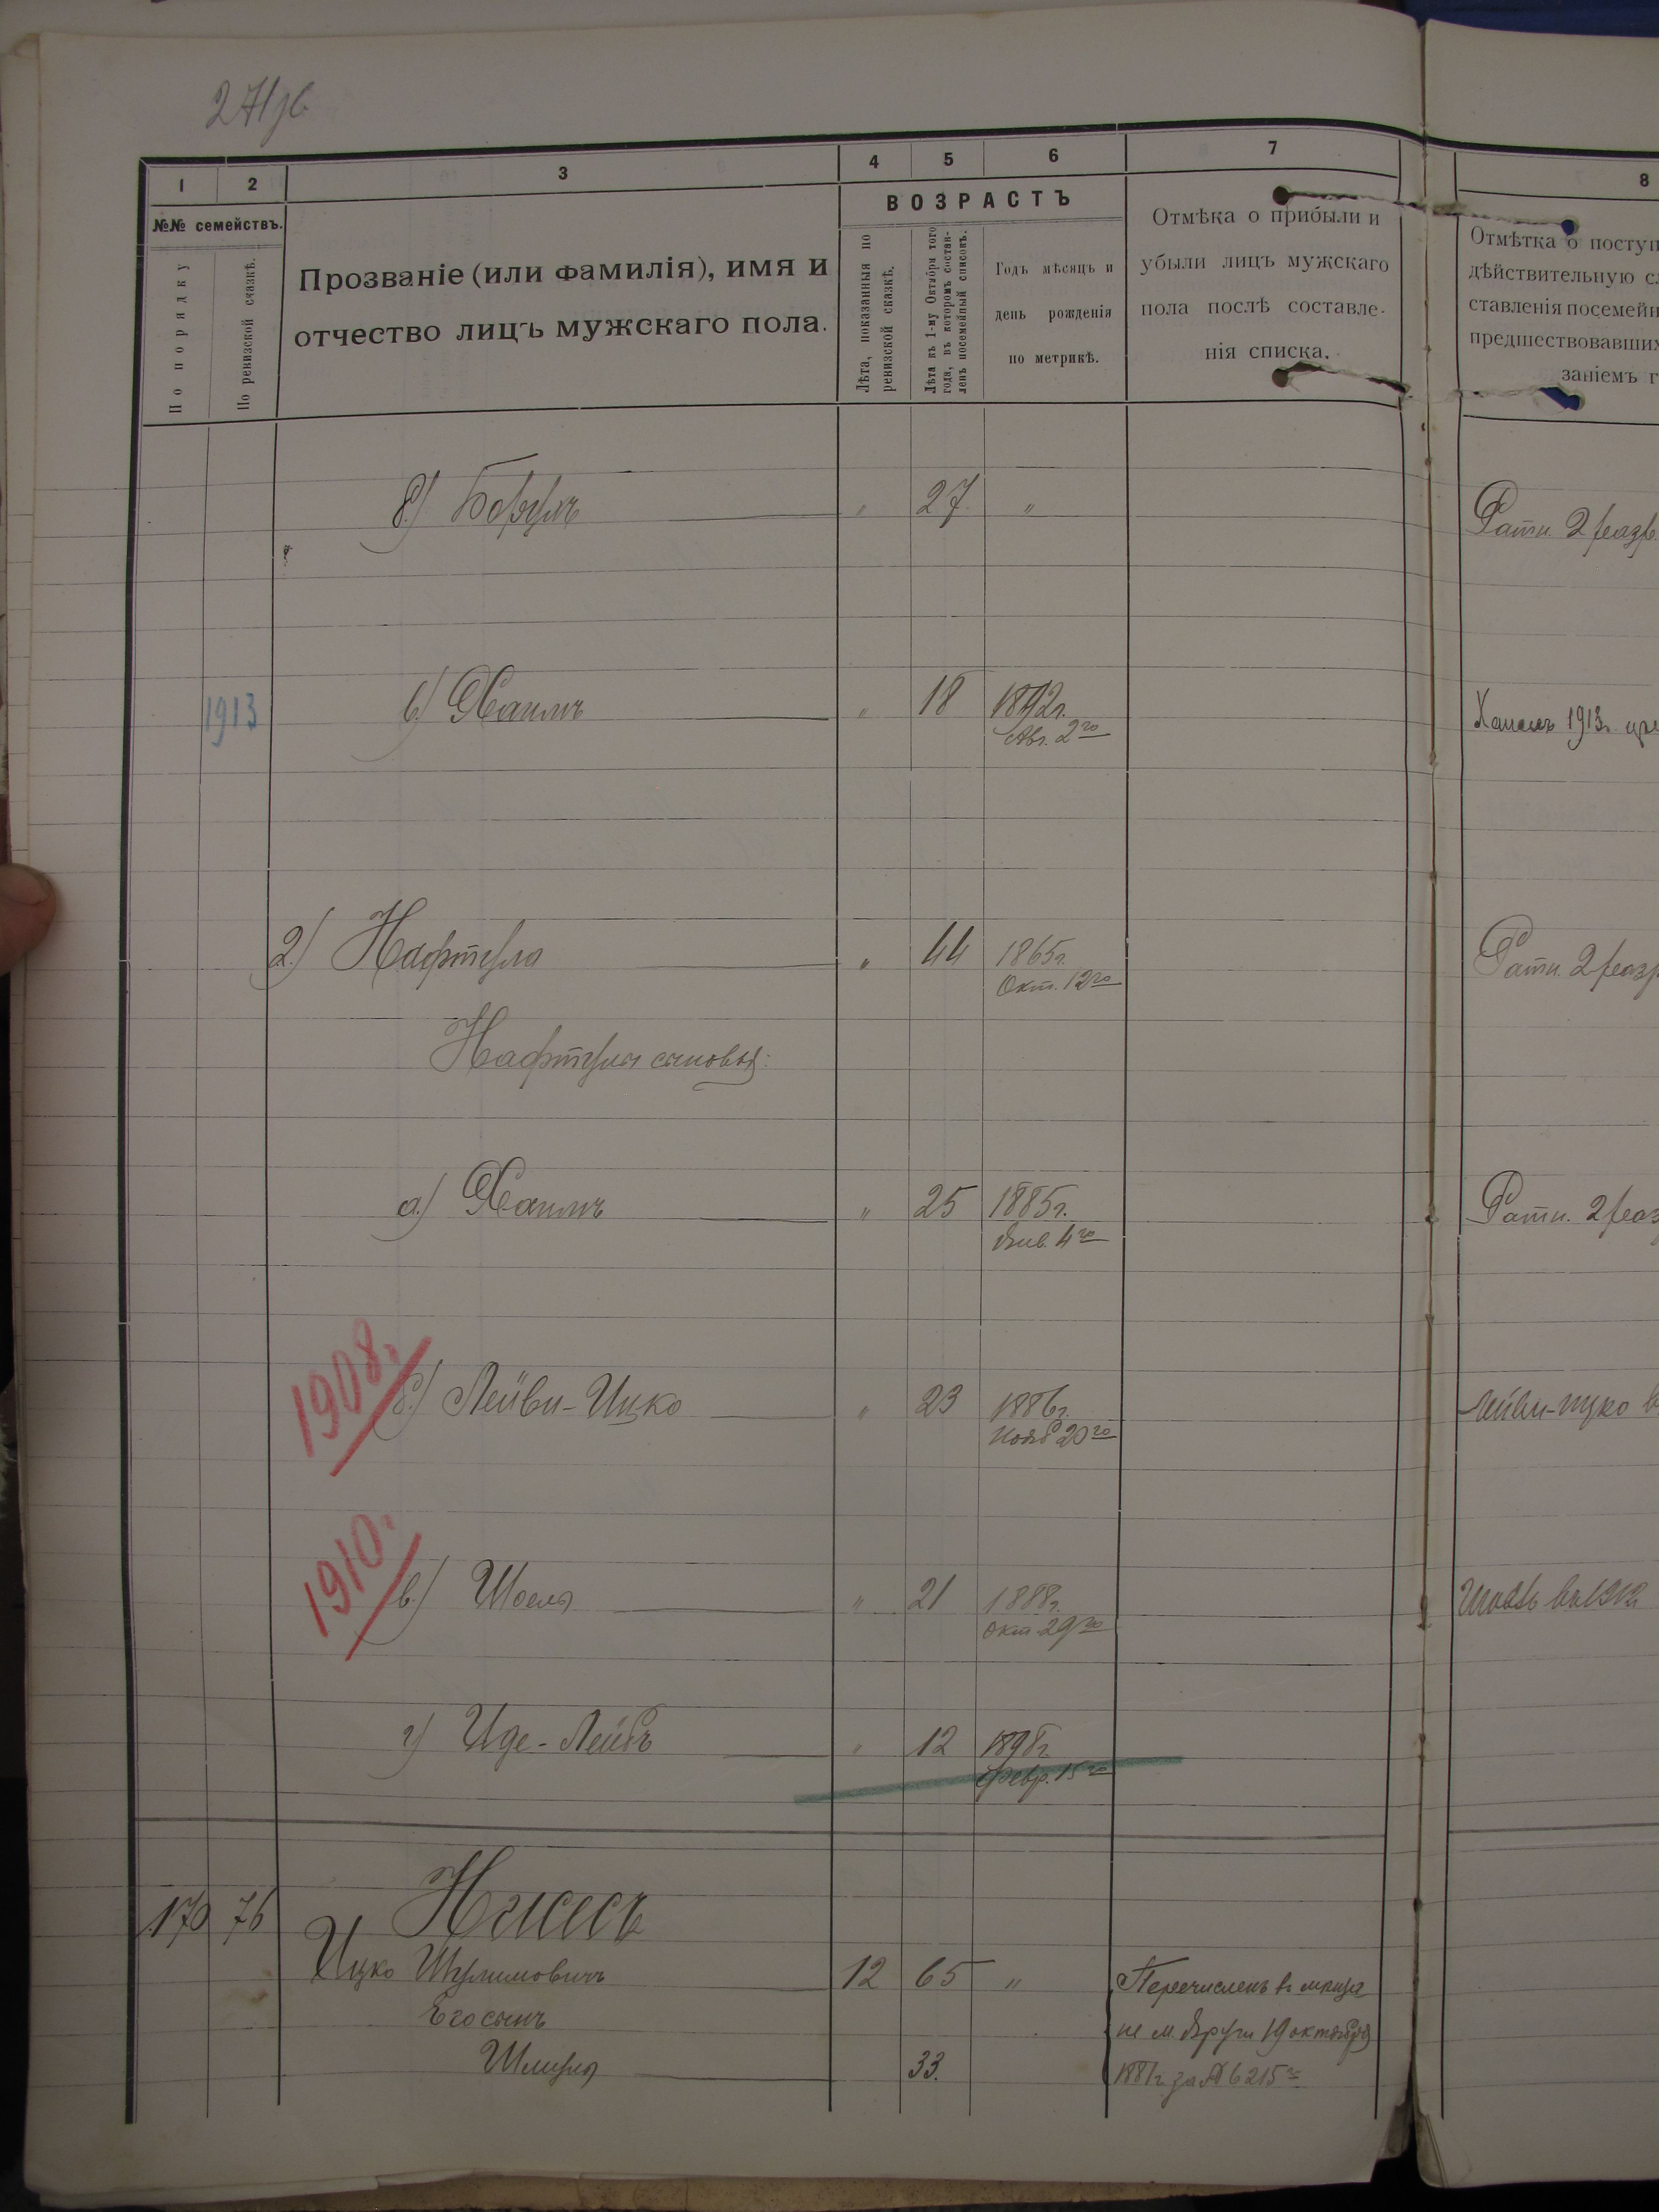 1 2 3 4 5 6 7 8
№№ семействъ.
По порядку
По ревизской сказкѣ.
Прозваніе (или фамилія), имя и
отчество лицъ мужскаго пола.
ВОЗРАСТЪ
Лѣта, показанныя по
ревизской сказкѣ.
Лѣта къ 1-му Октября того
года, въ которомъ состав-
ленъ посемейный списокъ.
Годъ мѣсяцъ и
день рожденія
по метрикѣ.
Отмѣка о прибыли и
убыли лицъ мужскаго
пола послѣ составле-
нія списка.
Отмѣтка о поступ
дѣйствительную сл
ставленія посемейн
предшествовавших
заніемъ г
б.) " 27. " Ратн. 2 разр.
1913 в.) Хаимъ " 18 1892г. 1913г.
Авг. 2го
2.) Нафтула " 44 1865г. Ратн. 2 разр
Окт. 12го
Нафтулы сыновья:
а.) Хаимъ " 25 1885г. Ратн. 2 раз
Янв. 4го
1908. б.) Лейви-Ицко " 23 1886г. Лейви-Ицко в
Нояб 20го
1910. в.) Шоель " 21 1888г.
Окт. 29го
г) Иде-Лейбъ " 12 1898г.
Февр. 15го
170 76 Нисесъ
Ицко Шулимовичъ 12 65 " Перечисленъ въ мѣща
Его сынъ не м. Яруги 19 октября
Шмуль 33. 1881г. за № 6215